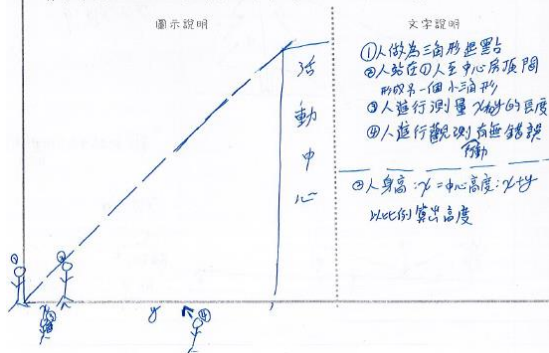 圖示說明
文字說明
①人做為三角形基點
②人站在①人至中心吊頂間
形成另一個小三角形
③人進行測量x和y的長度
④人進行觀測有無錯誤
行動
②人身高:x=中心高度:x+y
以比例算出高度
活動中心
y
④